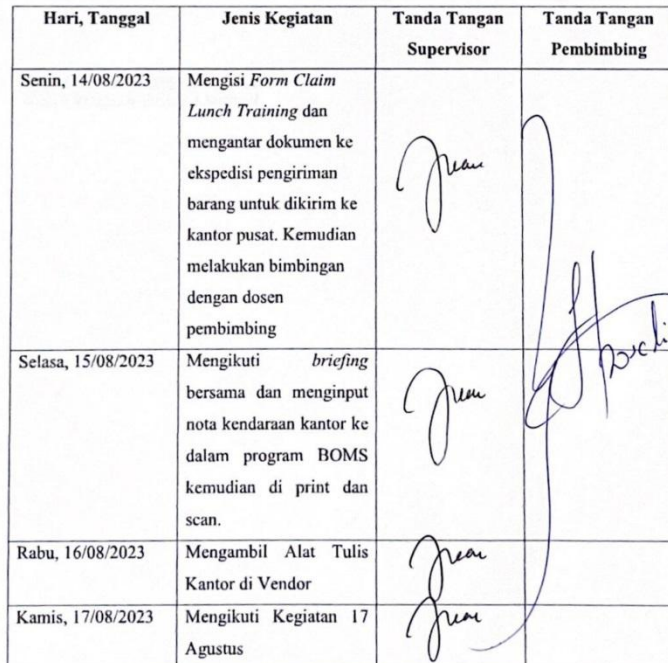 Hari, Tanggal Jenis Kegiatan Tanda Tangan Tanda Tangan
Supervisor Pembimbing
Senin, 14/08/2023 Mengisi Form Claim
Lunch Training dan
mengantar dokumen ke
ekspedisi pengiriman
barang untuk dikirim ke
kantor pusat. Kemudian
melakukan bimbingan
dengan dosen
pembimbing
Selasa, 15/08/2023 Mengikuti briefing
bersama dan menginput
nota kendaraan kantor ke
dalam program BOMS
kemudian di print dan
scan.
Rabu, 16/08/2023 Mengambil Alat Tulis
Kantor di Vendor
Kamis, 17/08/2023 Mengikuti Kegiatan 17
Agustus